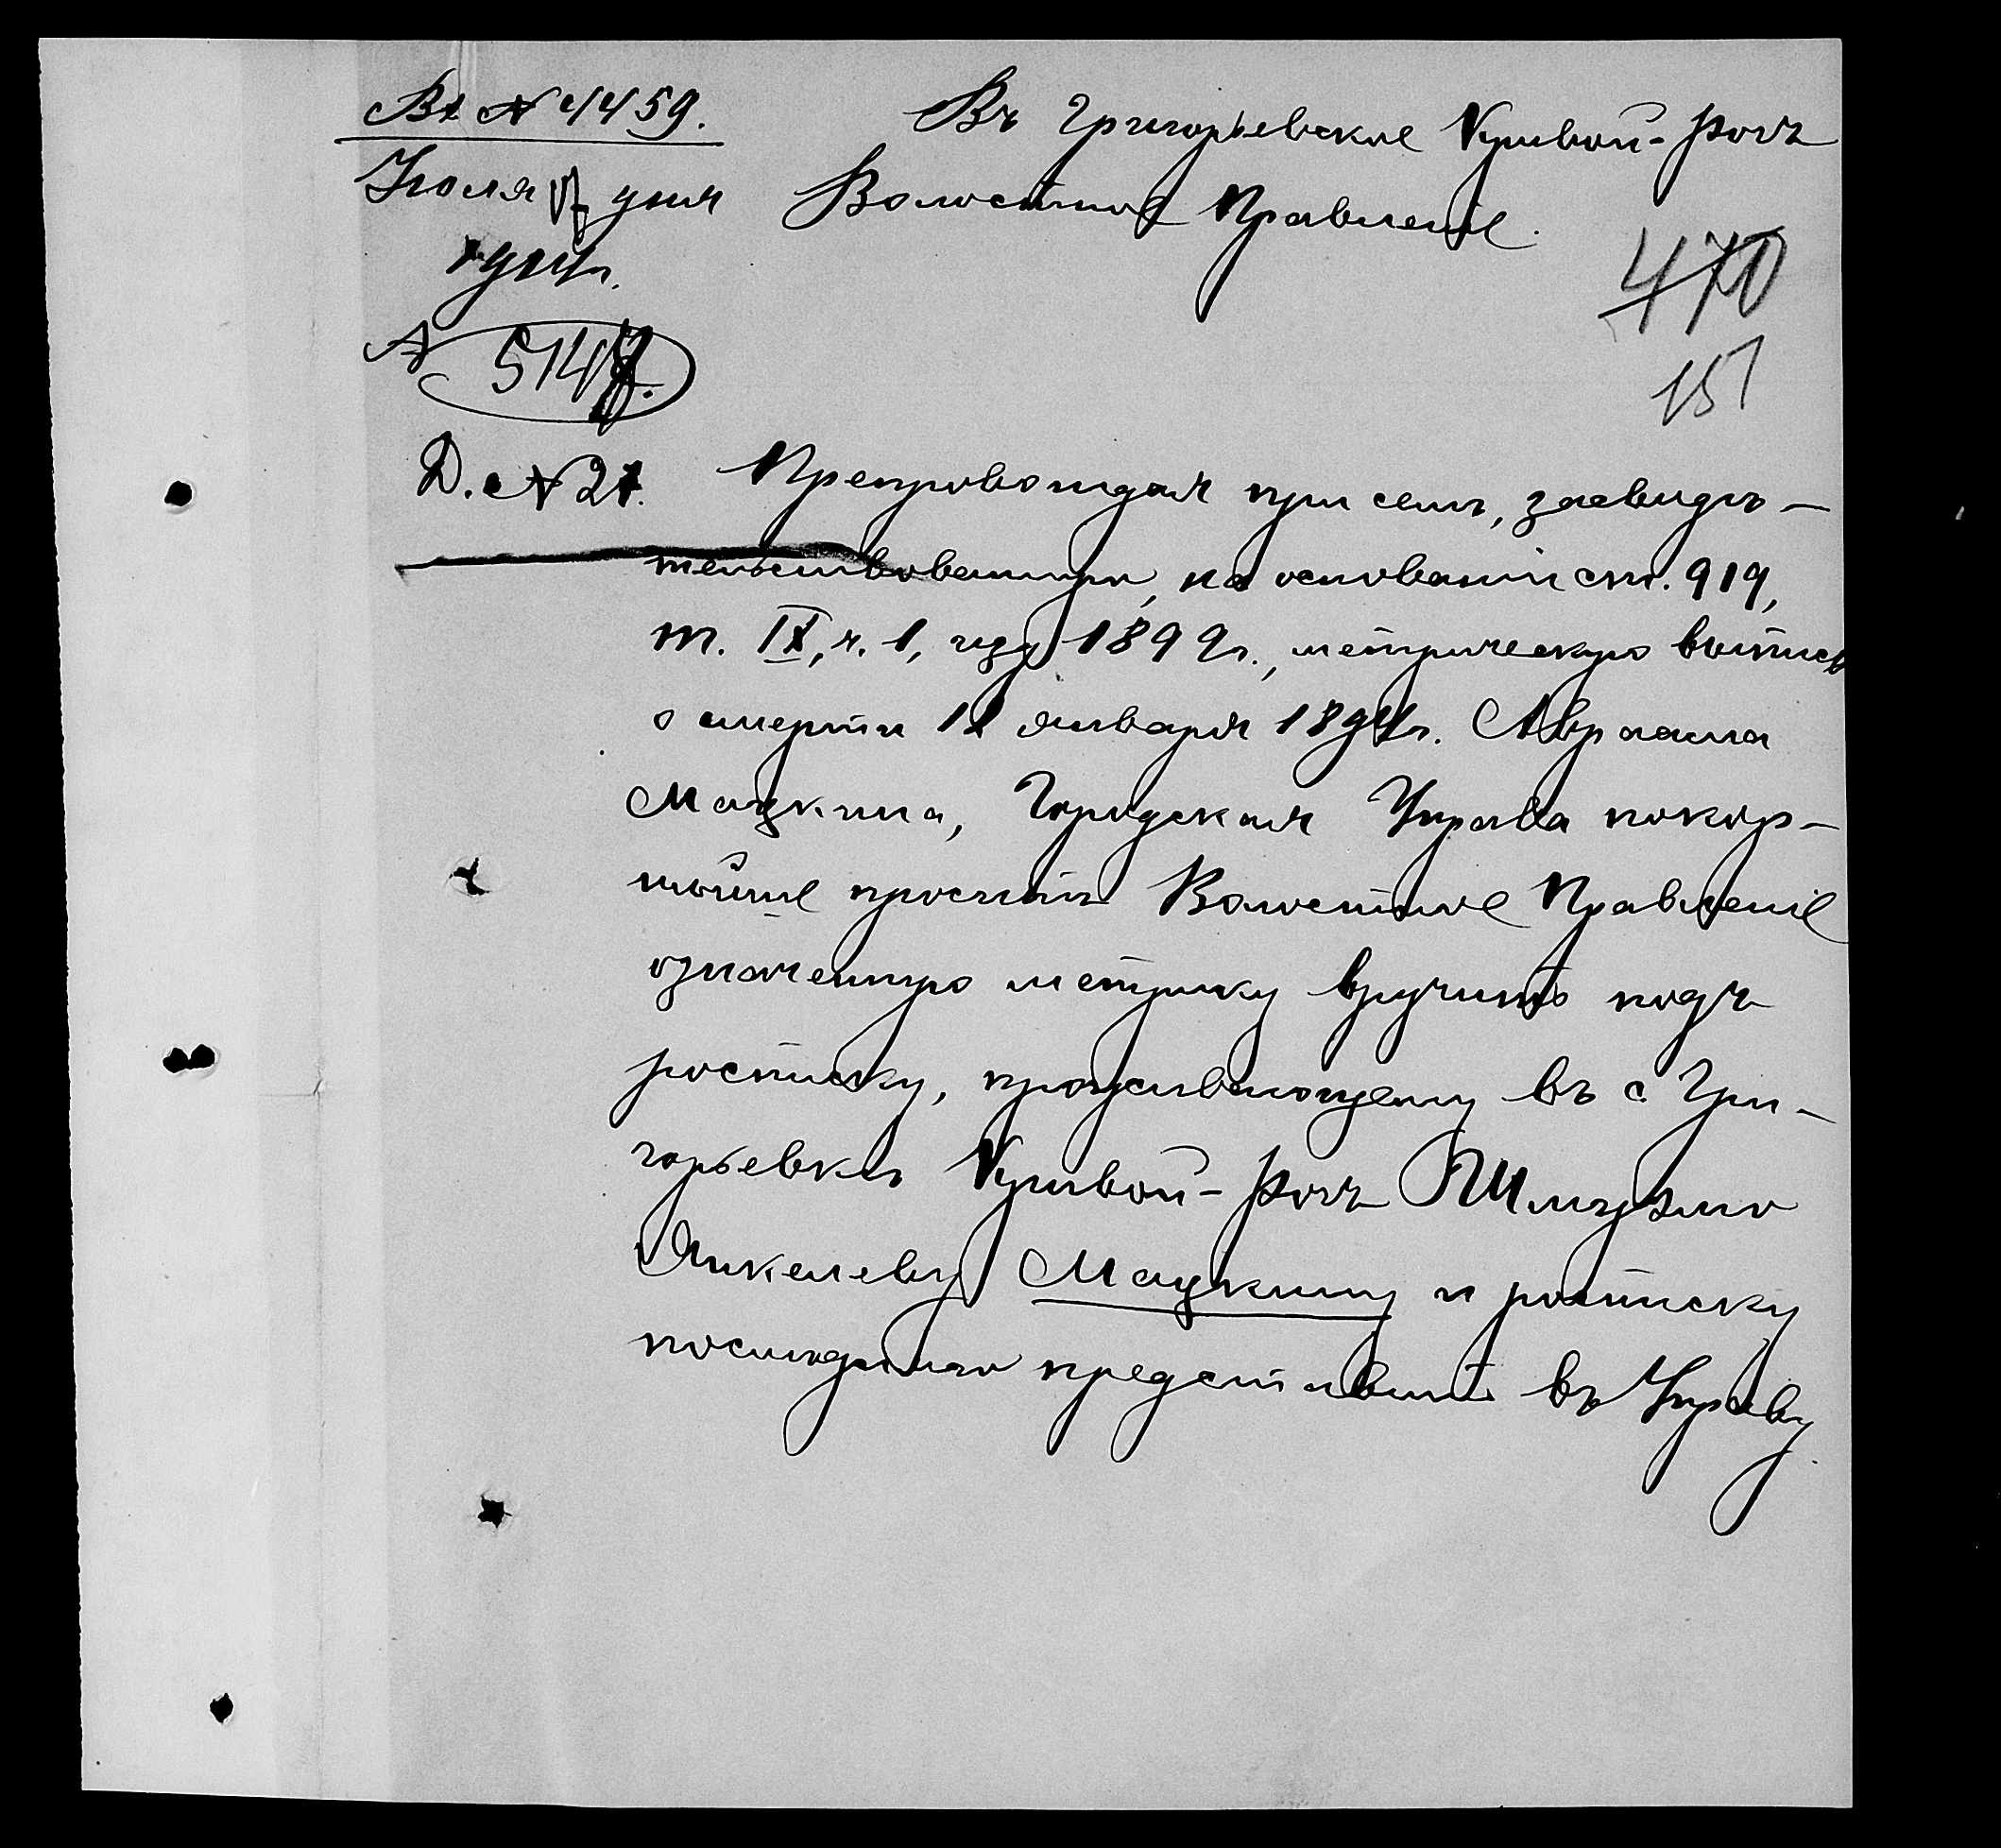 Вх № 4459.
Въ Григорьевское Кривой-Рогъ
Волостное Правленіе.
Іюля дня
№ 514
470
151
Д. № 27.
Препровождая при семъ, засвидѣ-
тельствованную, на основаніи ст. 919,
т. IX, ч. 1, изд 1899 г., метрическую выпись
о смерти 12 января 1894 г. Авраама
Мацкина, Городская Управа покор-
нѣйше проситъ Волостное Правленіе
означенную метрику вручить подъ
росписку, проживающему въ с. Гри-
горьевкѣ Кривой-Рогъ
Янкелеву Мацкину и росписку
послѣдняго представить въ Управу